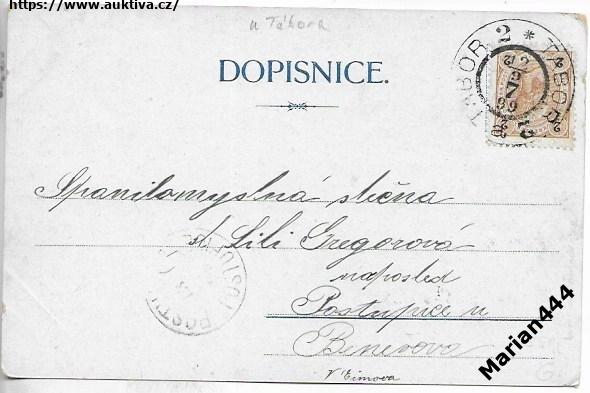 https://www.auktiva.cz/
u Tábora
DOPISNICE.
TÁBOR 2 * TABOR
Spanilomyslná slečna
sl. Lili Gregorová
naposled
Postupice u
Benešova
Marian444